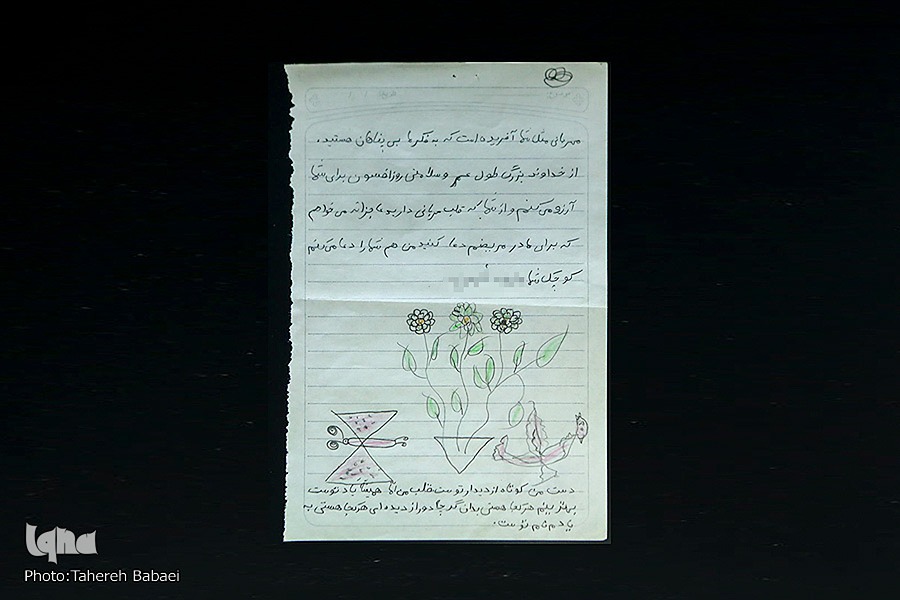 مهربانی مثل شما آفریده است که به فکر ما بی پناهان هستید.
از خداوند بزرگ طول عمر و سلامتی روزافسون برای شما
آرزو می‌کنم و از شما که قلب مهربانی دارید عاجزانه می خواهم
که برای مادر مریضم دعا کنید من هم شما را دعا می‌کنم
کوچک شما
دست من کوتاه از دیدار توست قلب من اما همیشه یاد توست
بهترینم هر کجا هستی بدان گر چه دور از دیده ای هر کجا هستی به
یادم نام توست.
iqna
Photo:Tahereh Babaei